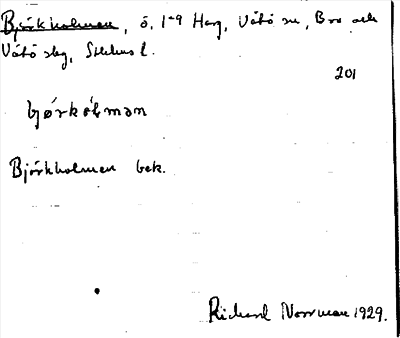 Björkholmen, ö, 1-9 Harg, Vätö sn, Bro och
Vätö skg, Sthlms l.
201
bjørkǿlmən
Björkholmen bek.
Rickard Norrman 1929.